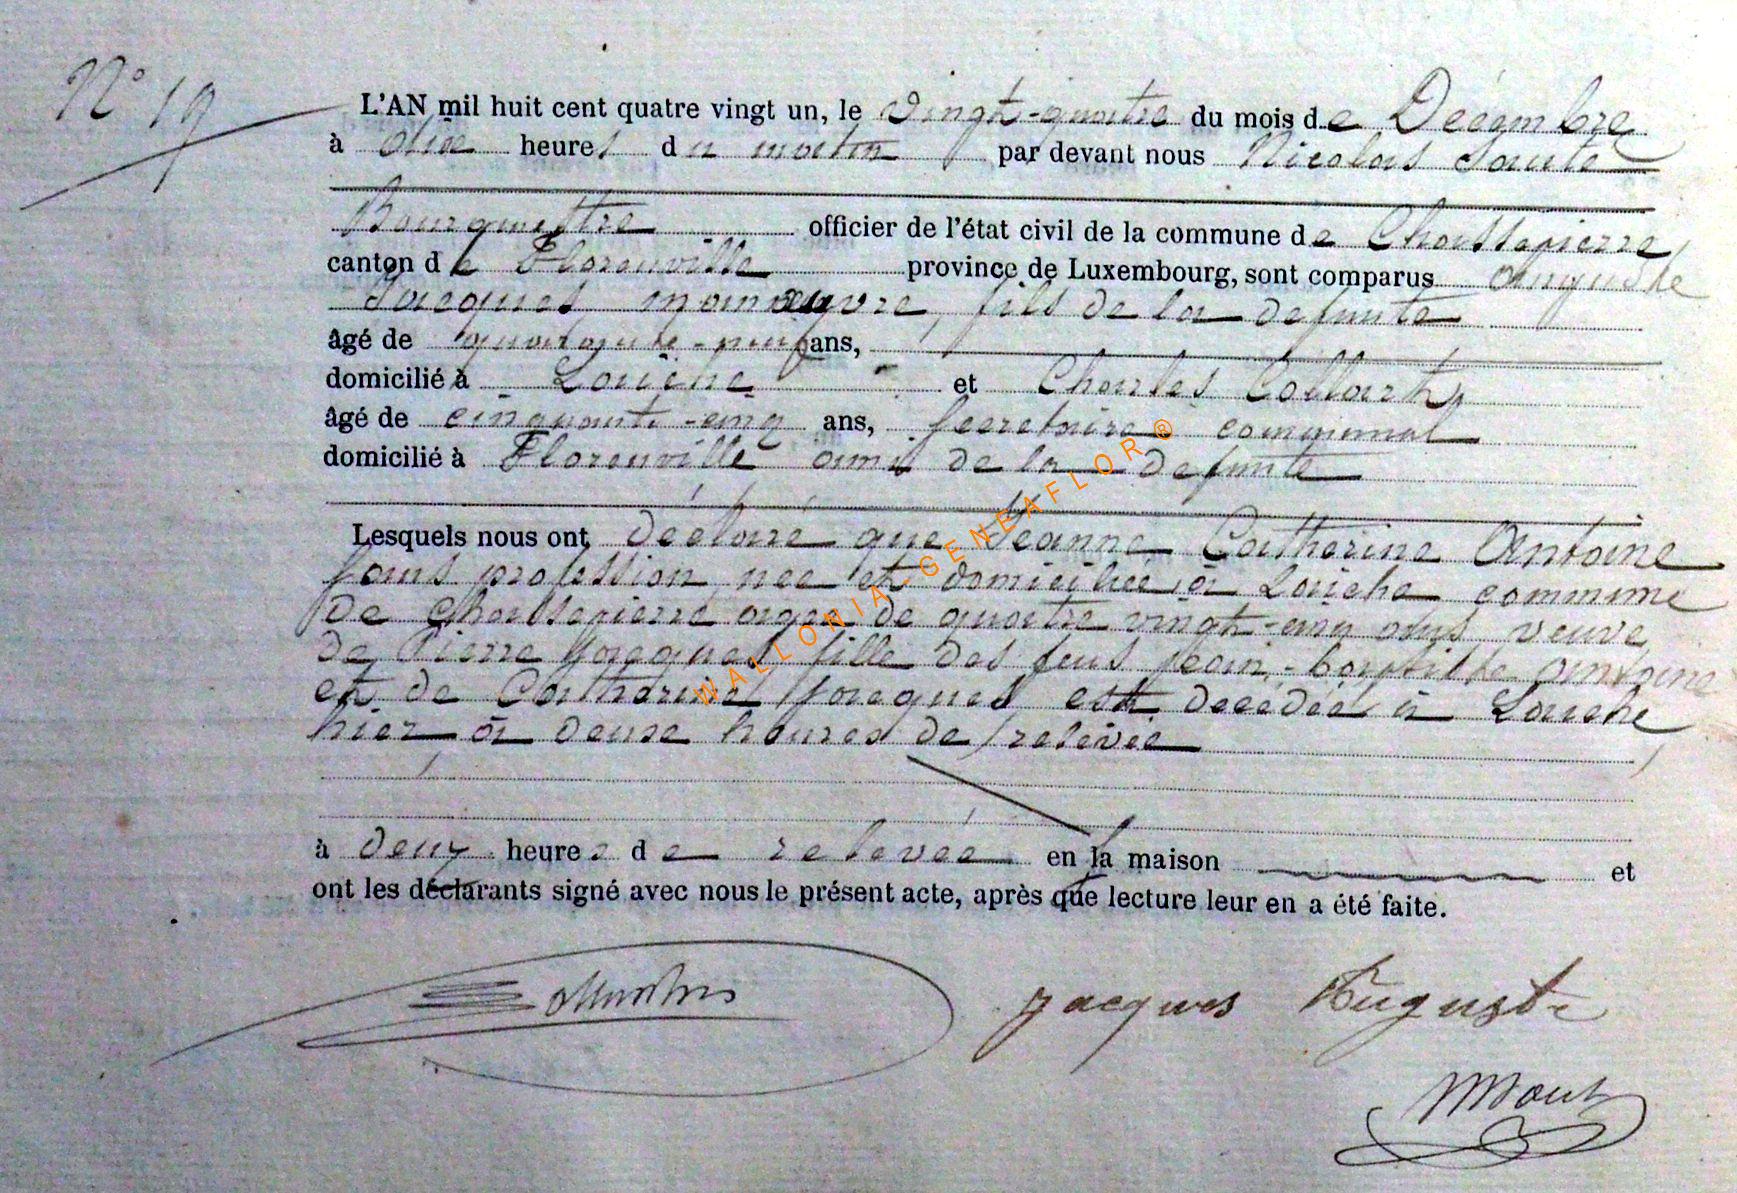 N° 19
L'AN mil huit cent quatre vingt un, le vingt-quatre du mois de Décembre
à dix heures du matin par devant nous Nicolas
Bourgmestre officier de l'état civil de la commune de Chassepierre,
canton de Florenville province de Luxembourg, sont comparus Auguste
Jacques manœuvre, fils de la défunte
âgé de quarante-neuf ans,
domicilié à Laiche et Charles Collart,
âgé de cinquante-cinq ans, secrétaire communal
domicilié à Florenville ami de la défunte
Lesquels nous ont déclaré que Jeanne Catherine Antoine
sans profession, née et domiciliée à Laiche commune
de Chassepierre, âgée de quatre vingt-cinq ans, veuve
de Pierre Jacques, fille des feus Jean-Baptiste Antoine
et de Catherine Jacques est décédée à Laiche
hier à deux heures de relevée
à deux heures de relevée en la maison et
ont les déclarants signé avec nous le présent acte, après que lecture leur en a été faite.
Jacques Auguste
WALLONIA-GENEAFLOR®